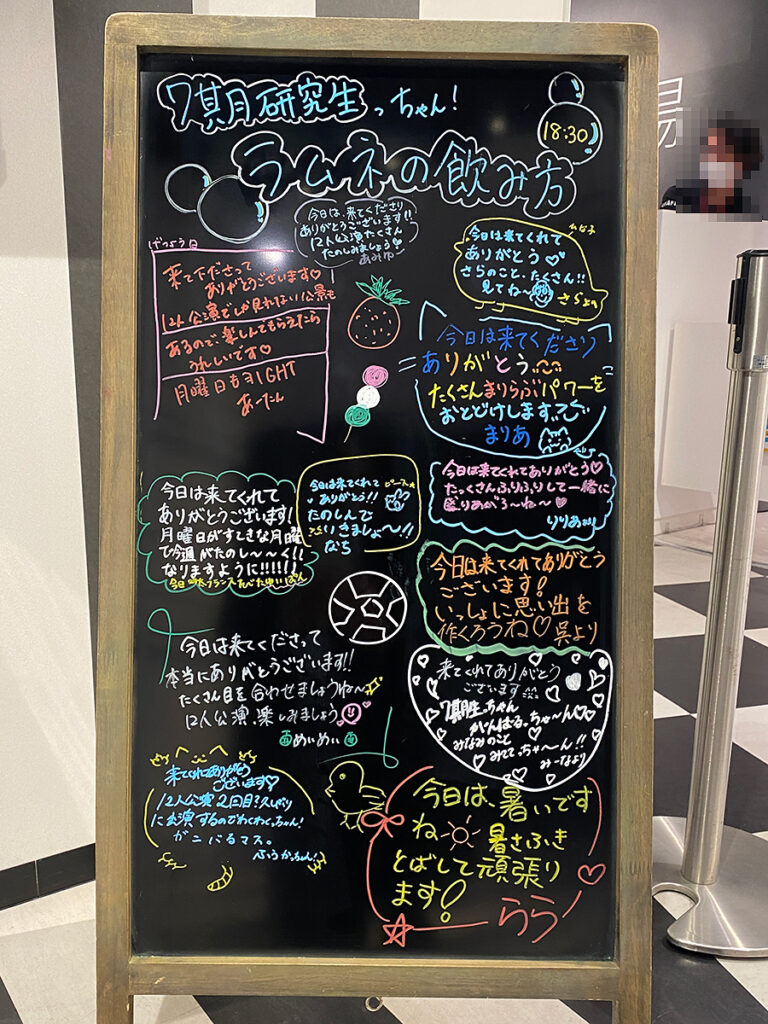 7期研究生っちゃん!
18:30
ラムネの飲み方
今日は、来てくださり
ありがとうございます!!
12人公演たくさん
たのしみましょう
あみゆ
げつようび
来て下さって
ありがとうございます♡
12人公演でしか見れない公景も
あるので楽しんでもらえたら
うれしいです♡
月曜日もヨIGHT
あーたん
今日は来てくれて
ありがとう♡
さらのこと、たくさん!!
見てね〜
さらより
今日は来てくださり
ありがとう
たくさんまりらぶパワーを
おとどけします
まりあ
今日は来てくれてありがとう♡
たっくさんふりふりして一緒に
盛りあがろ〜ね〜♥
りりあより
今日は来てくれて
ありがとうございます!
月曜日がすしきな月曜
で今週がたのし〜〜く!!
なりますように!!!!!!
今日は来てくれて
ありがとう!!
たのしんで
いきましょ〜!!
なち
ピース
今日は来てくれてありがとう
ございます!
いっしょに思い出を
作くろうね♡ 呉より
今日は来てくださって
本当にありがとうございます!!
たくさん目を合わせましょうね〜
12人公演、楽しみましょう
めいめい
来てくれてありがとう
ございます
7期生っちゃん
がんばるっちゃ〜ん♡
みなみのこと
みててっちゃ〜ん!!
みーなより
来てくれてありがとう
ございます♡
12人公演2回目?久しぶり
に公演するのでわくわくっちゃん!
がニバるマス。
ふうかっちゃん!
今日は、暑いです
ね☀ 暑さふき
とばして頑張り
ます!
らら